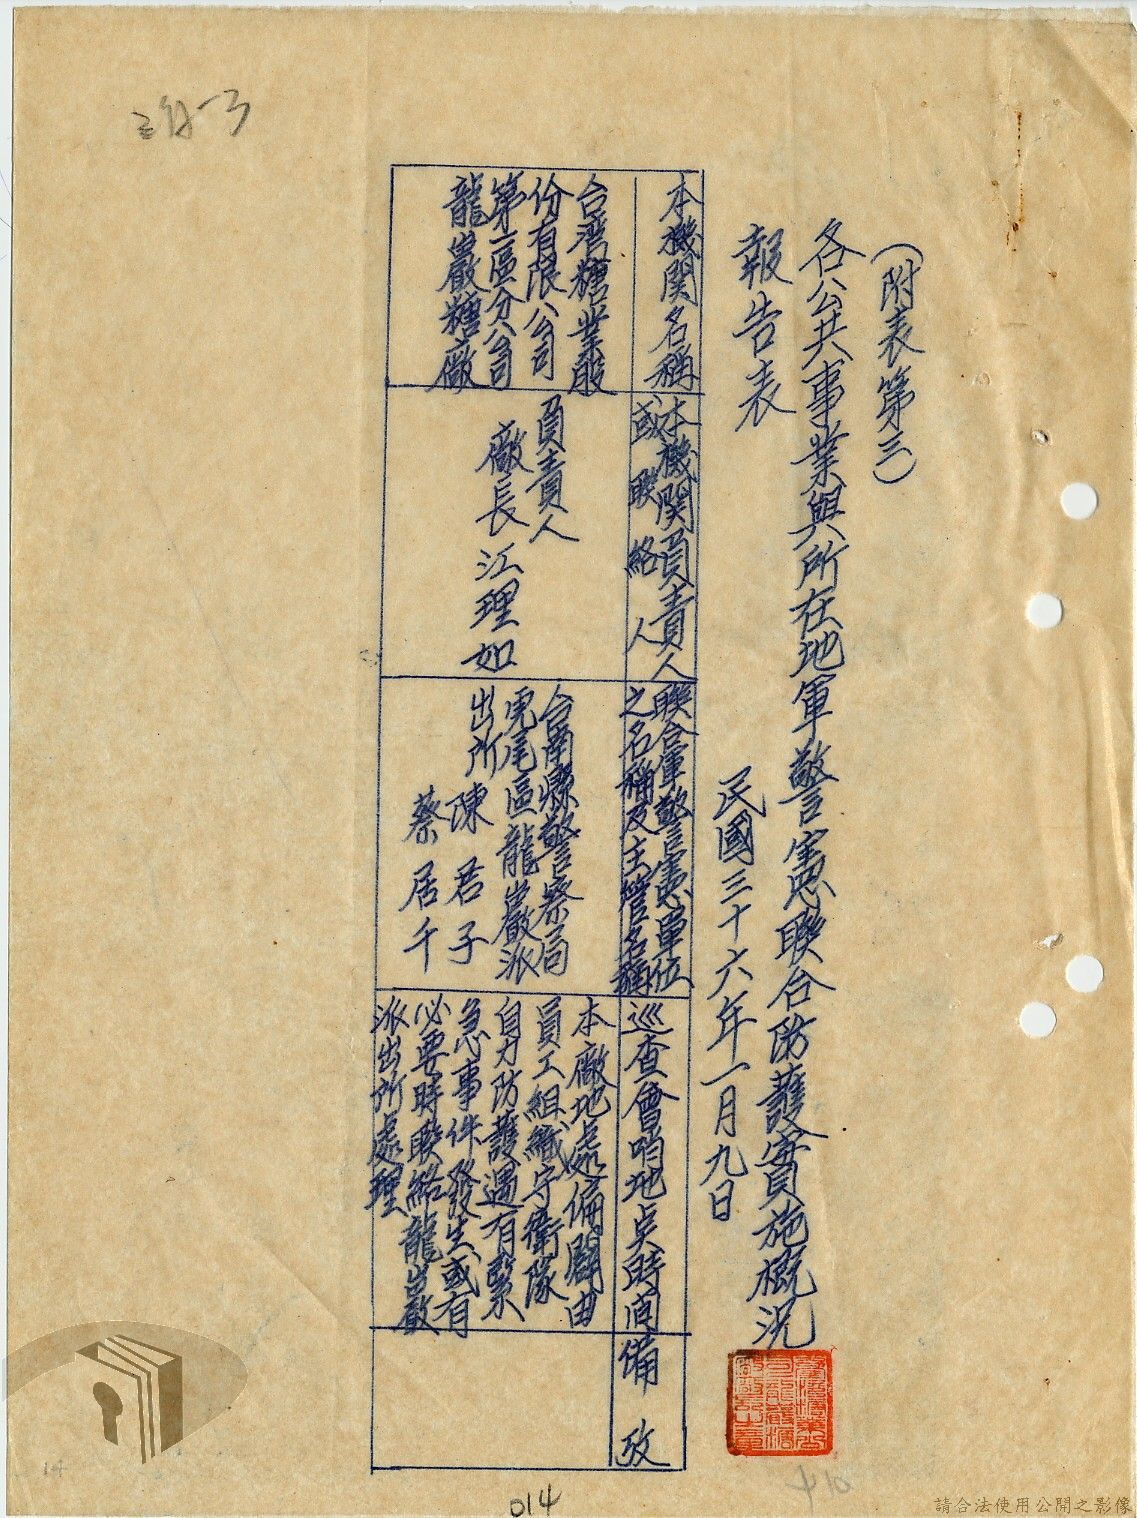 (附表第三)
各公共事業與所在地軍警憲聯合防護實施概況
報告表
民國三十六年一月九日
本機関名稱
台湾糖業股
份有限公司
第二區分公司
龍巖糖廠
本機関負責人
或聯絡人
負責人
廠長江理如
聯合軍警憲單位
之名稱及主管名稱
台南縣警察局
虎尾區龍巖派
出所陳君子
蔡居千
巡查會哨地点時间
本廠地處偏僻由
員工組織守衛隊
自力防護遇有緊
急事件發生或有
必要時聯絡龍巖
派出所處理
備攷
014
14
請合法使用公開之影像